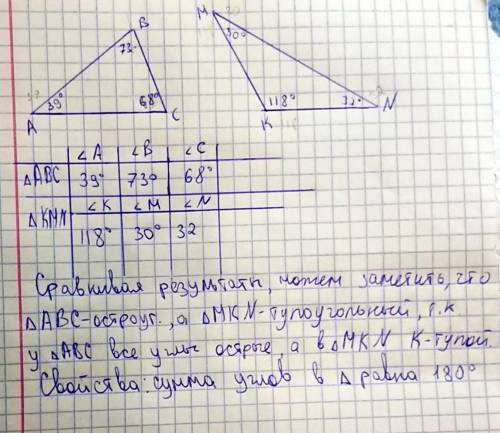 B
M
73
30°
39°
68°
118°
32°
A
C
K
N
∠A ∠B ∠C
△ABC 39° 73° 68°
△KMN ∠K ∠M ∠N
118° 30° 32
Сравнивая результаты, можем заметить, что
△ABC-остроуг., а △MKN-тупоугольный, т.к
у △ABC все углы острые, а в △MKN K-тупой.
Свойства: сумма углов в △ равна 180°